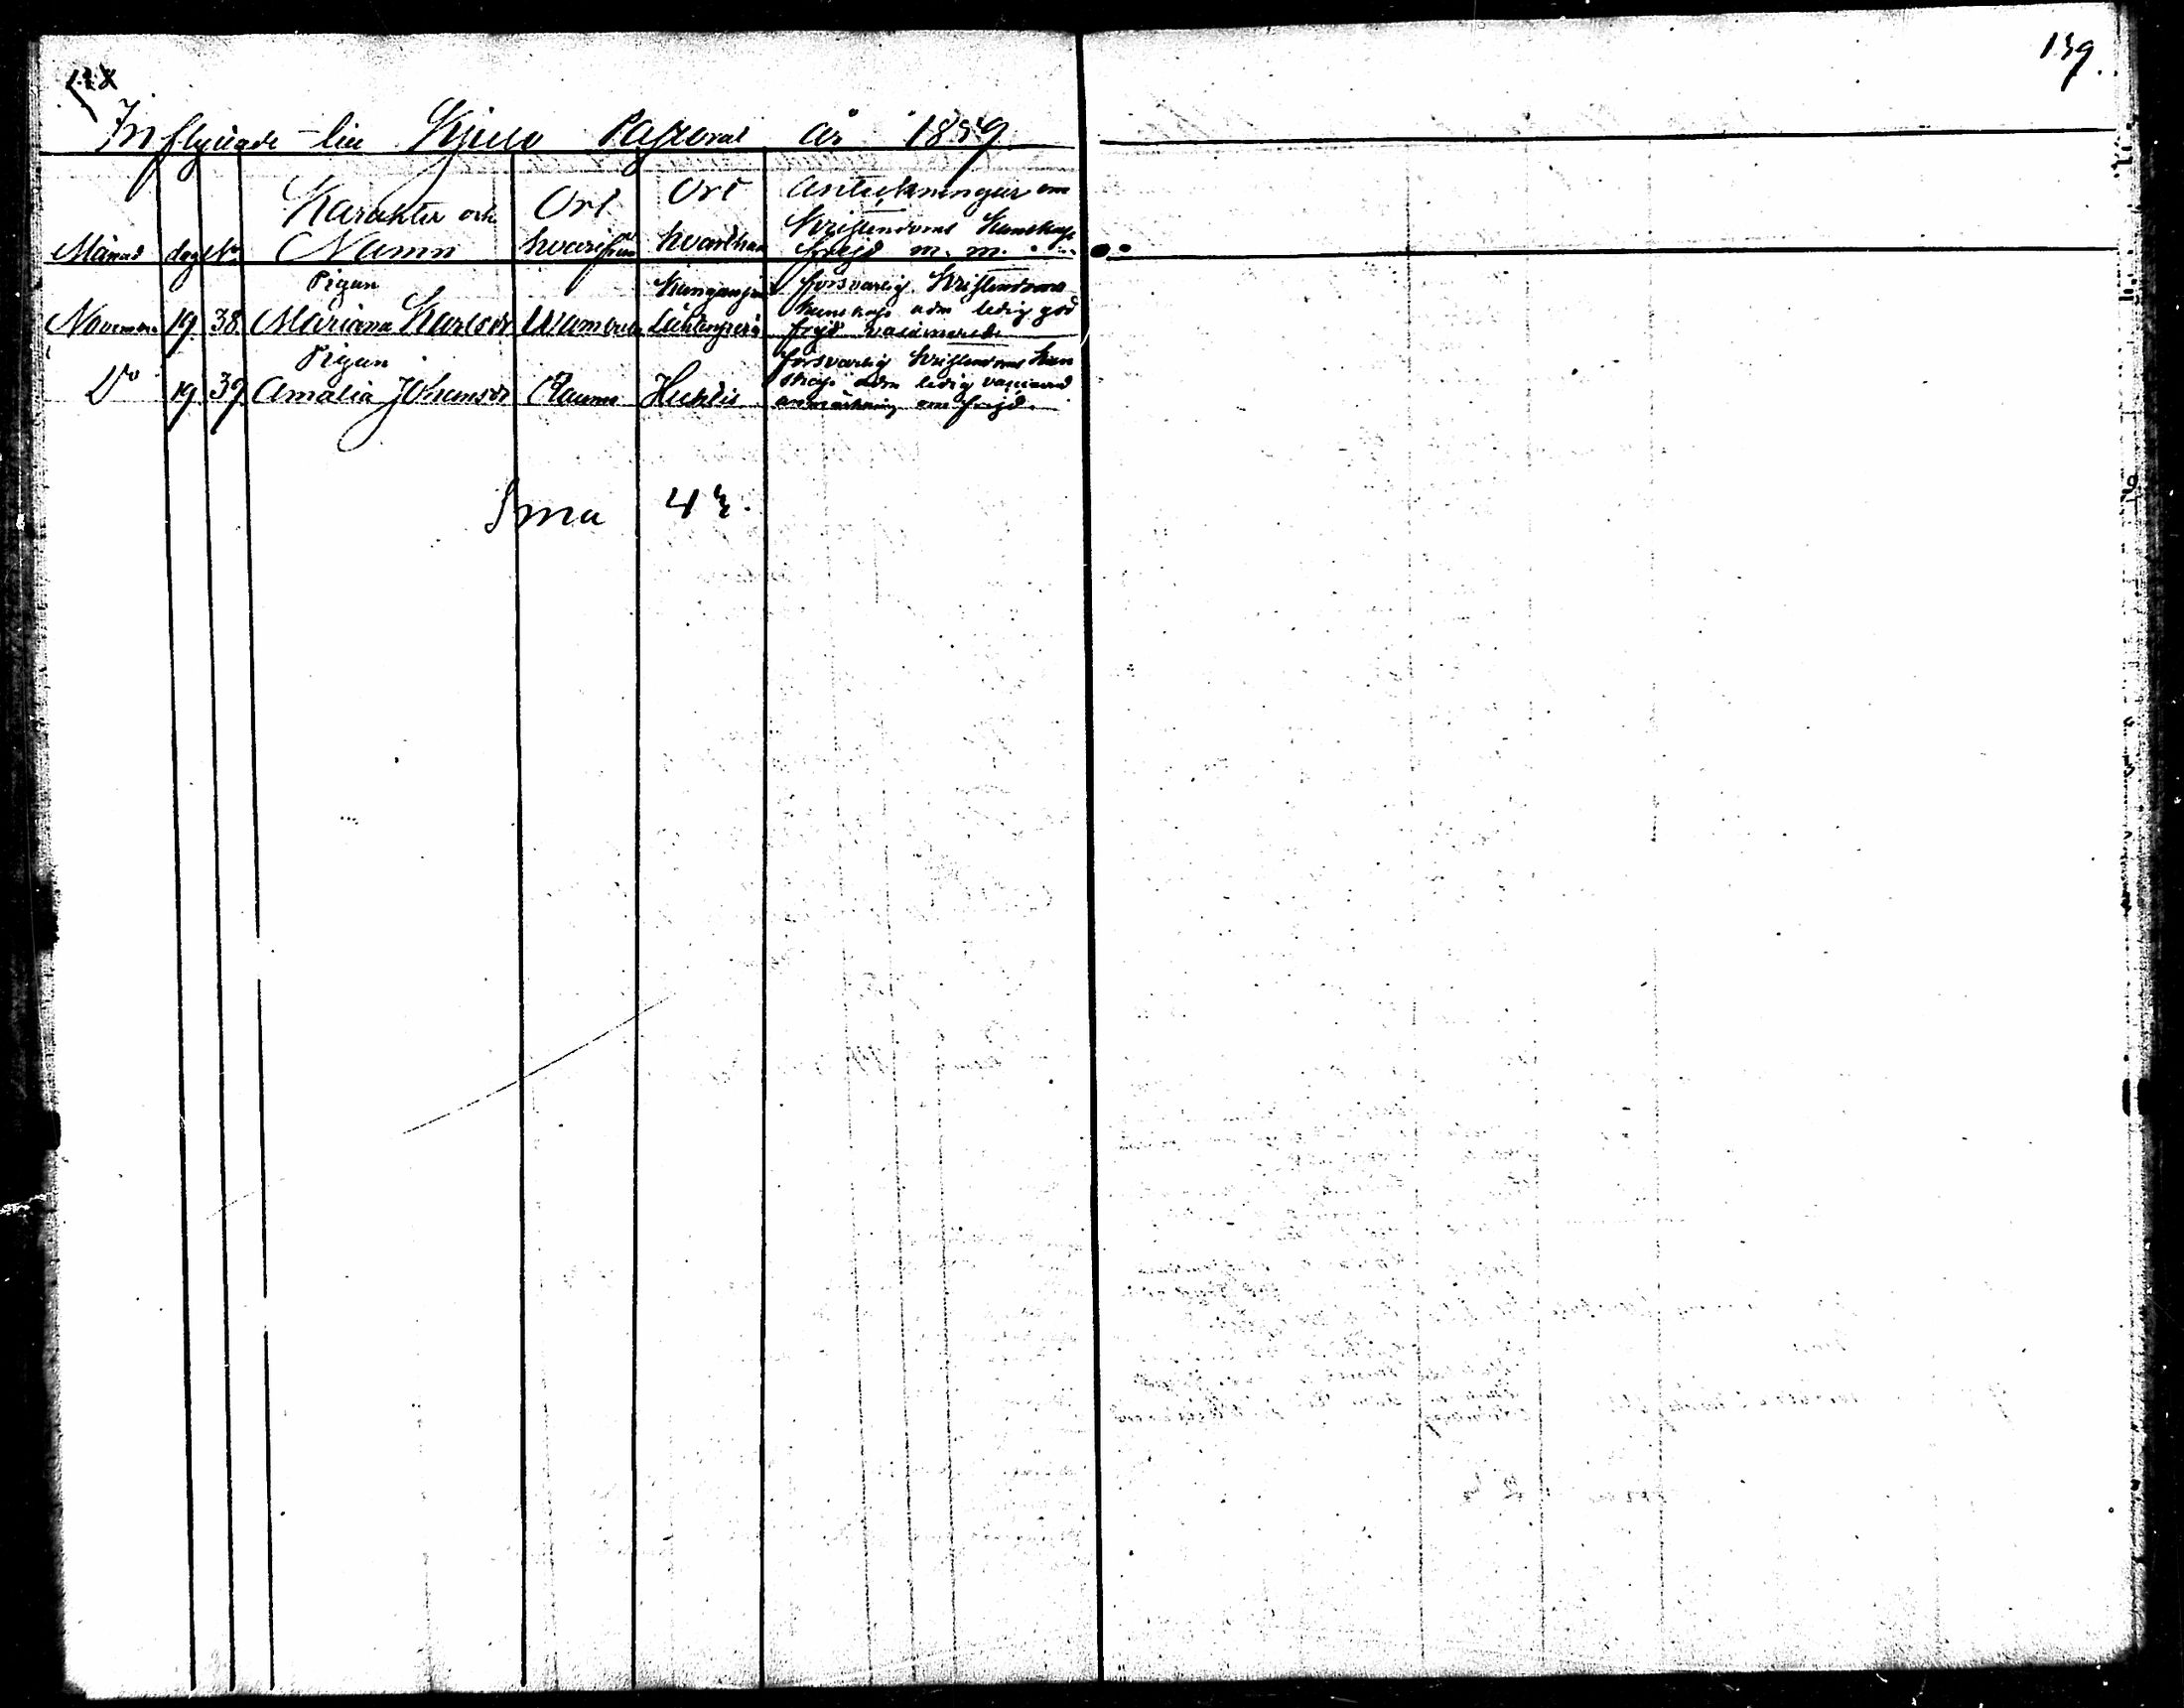 138
139.
Inflyttade till Kjulo Pastorat år 1859
Månad dag No Karakter och Namn Ort hvarifrån Ort hvarthän Anteckningar om Kristendoms Kunskap frejd m. m.
November 19. 38. Pigan Mariana Karlsdr försvarlig Kristendoms
kunskap adm ledig god
frejd vaccinerad
Do 19. 39. Pigan Amalia Johansdr Raumo försvarlig Kristendoms Kun
skap adm ledig
anmärkning om frejd.
Sma